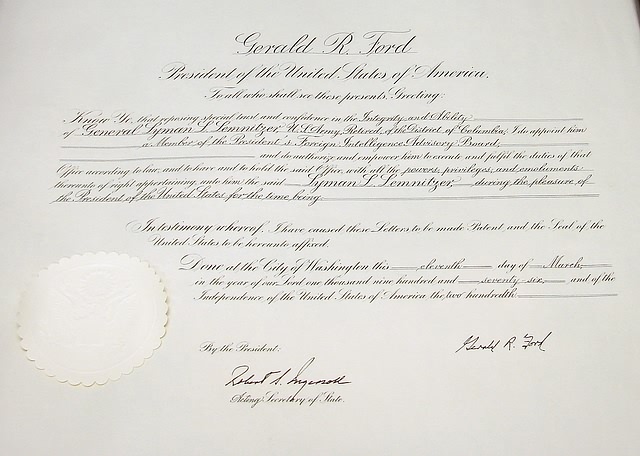 Gerald R. Ford
President of the United States of America.
To all who shall see these presents, Greeting:
Know Ye, that reposing special trust and confidence in the Integrity and Ability
of General Lyman L. Lemnitzer, U.S. Army, Retired, of the District of Columbia, I do appoint him
a Member of the President's Foreign Intelligence Advisory Board,
and do authorize and empower him to execute and fulfil the duties of that
Office according to law, and to have and to hold the said Office, with all the powers, privileges, and emoluments
thereunto of right appertaining, unto him the said Lyman L. Lemnitzer, during the pleasure of
the President of the United States for the time being.
In testimony whereof, I have caused these Letters to be made Patent and the Seal of the
United States to be hereunto affixed.
Done at the City of Washington this eleventh day of March,
in the year of our Lord one thousand nine hundred and seventy-six, and of the
Independence of the United States of America the two hundredth.
By the President:
Gerald R. Ford
Robert S. Ingersoll
Acting Secretary of State.